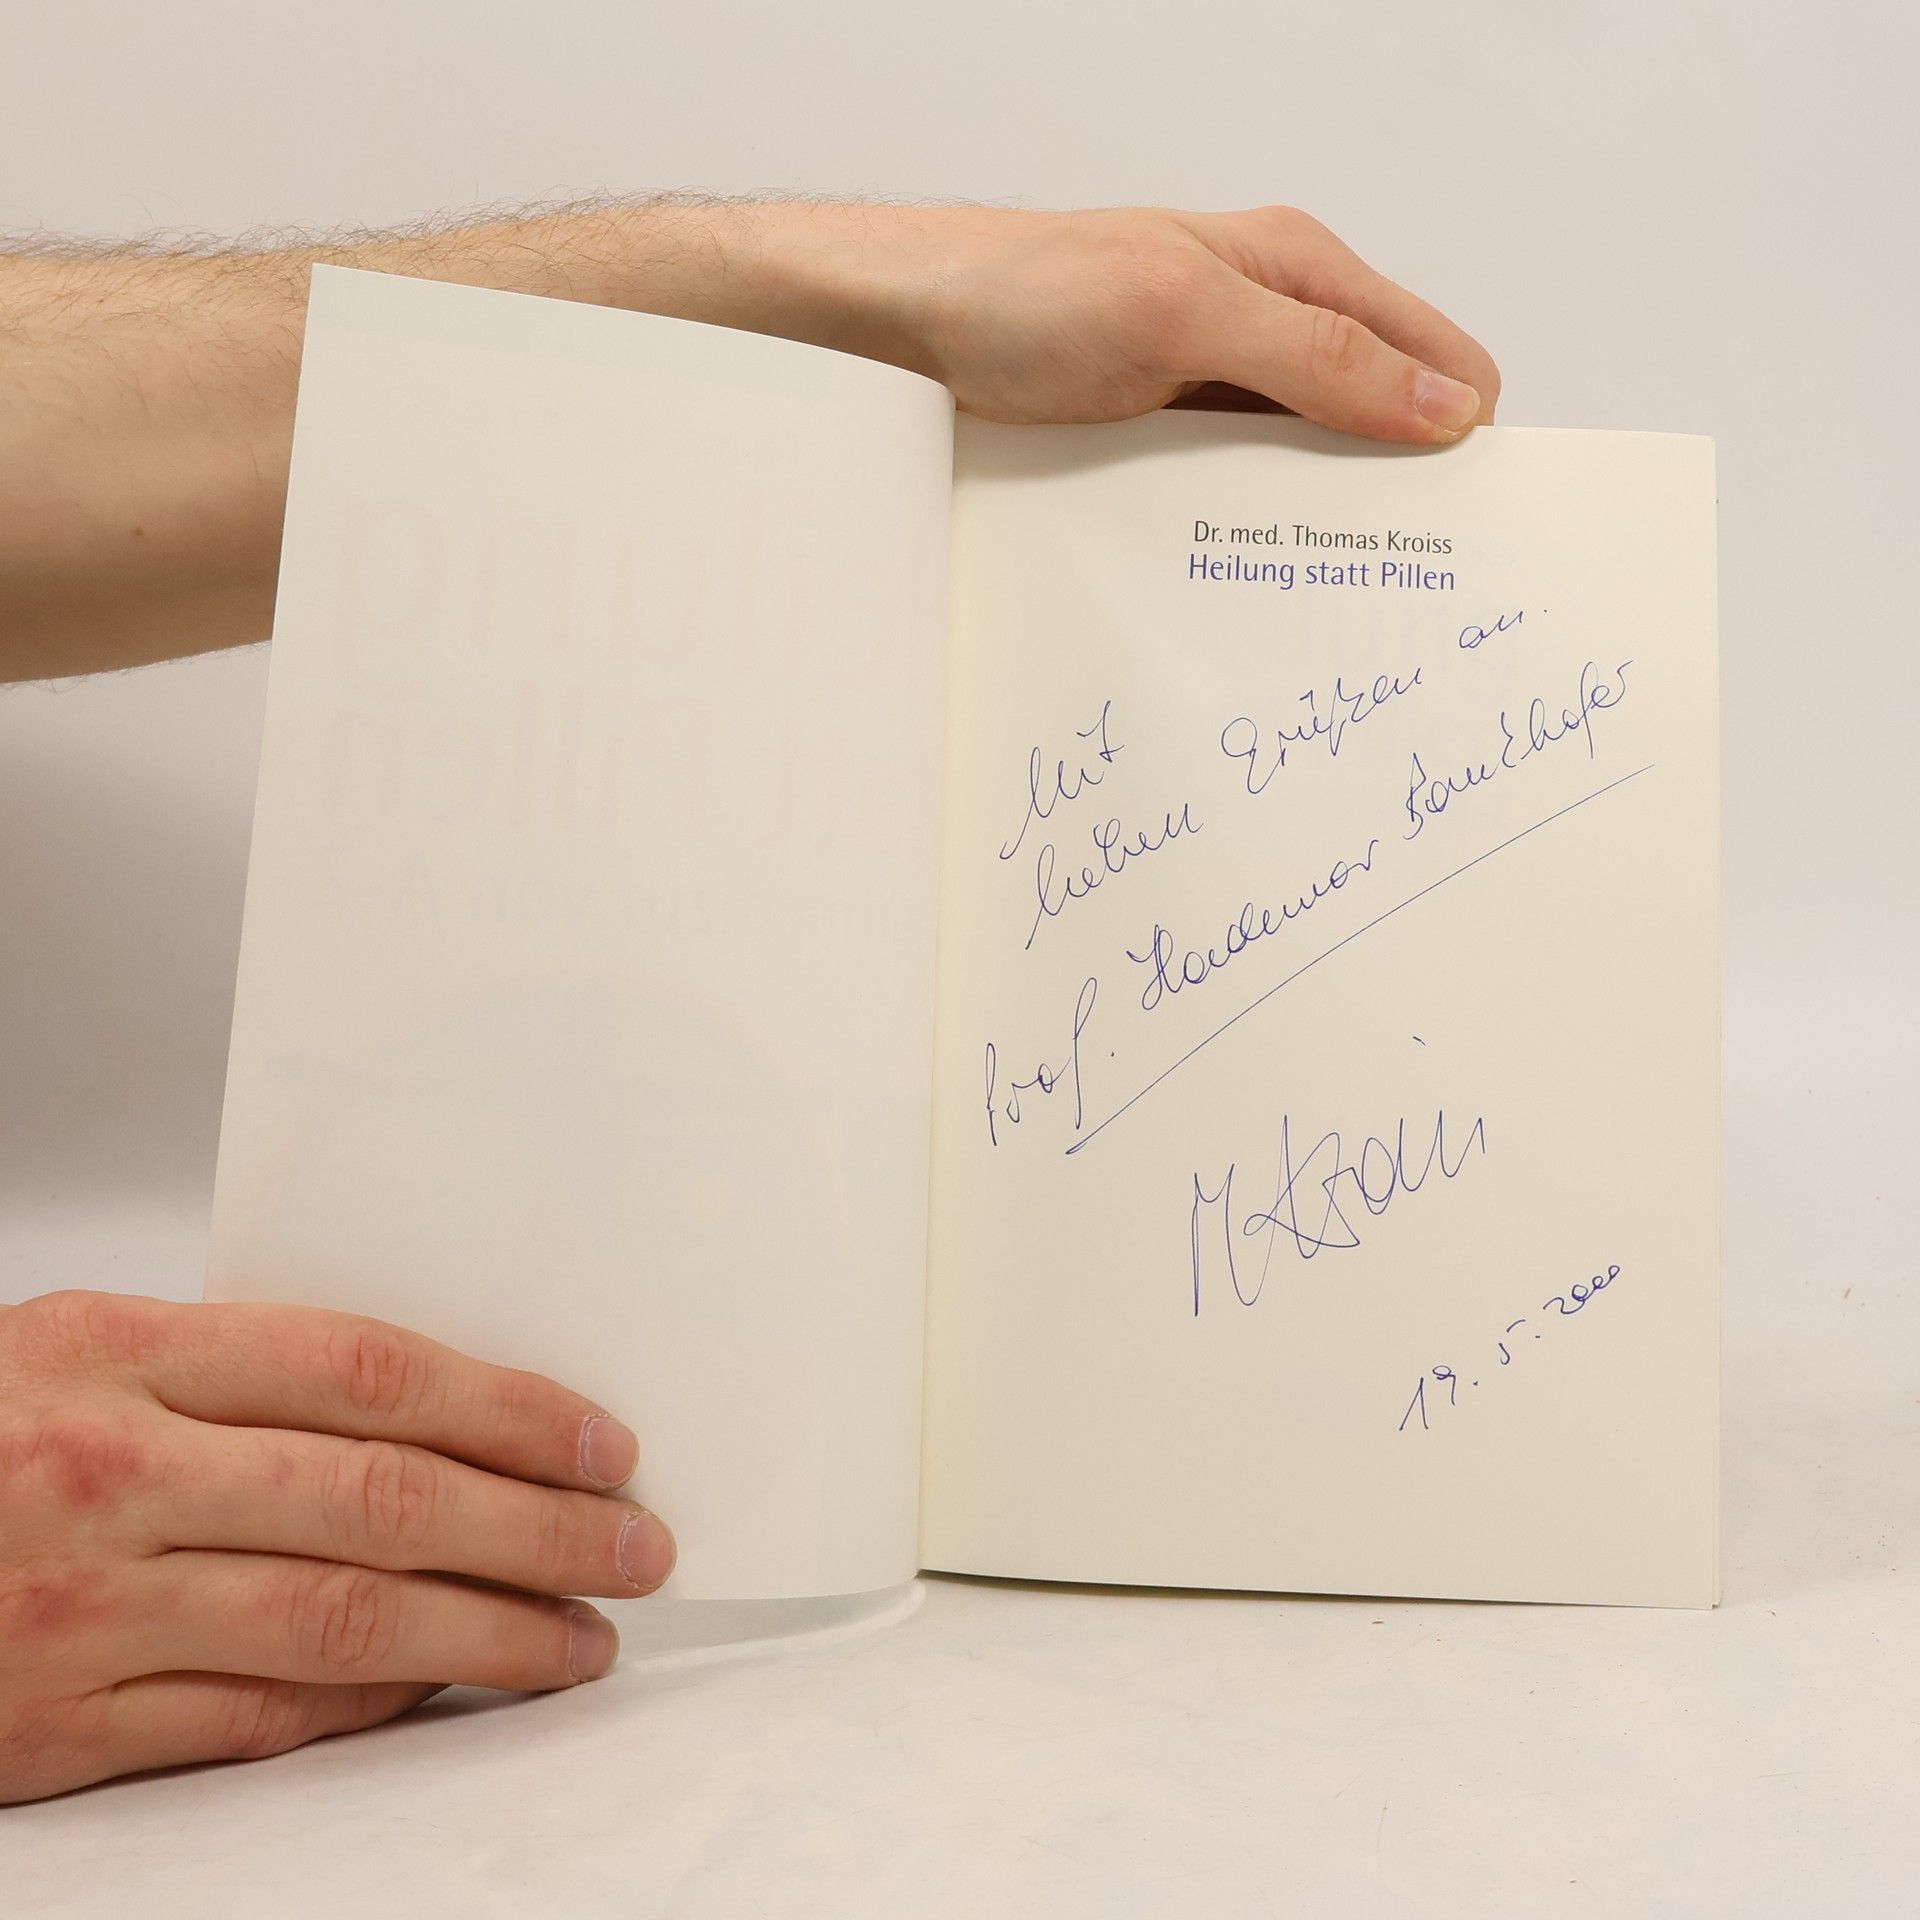 Dr. med. Thomas Kroiss
Heilung statt Pillen
Mit
lieben Grüßen an
Prof. Hademar Bankhofer
19. 5. 2000